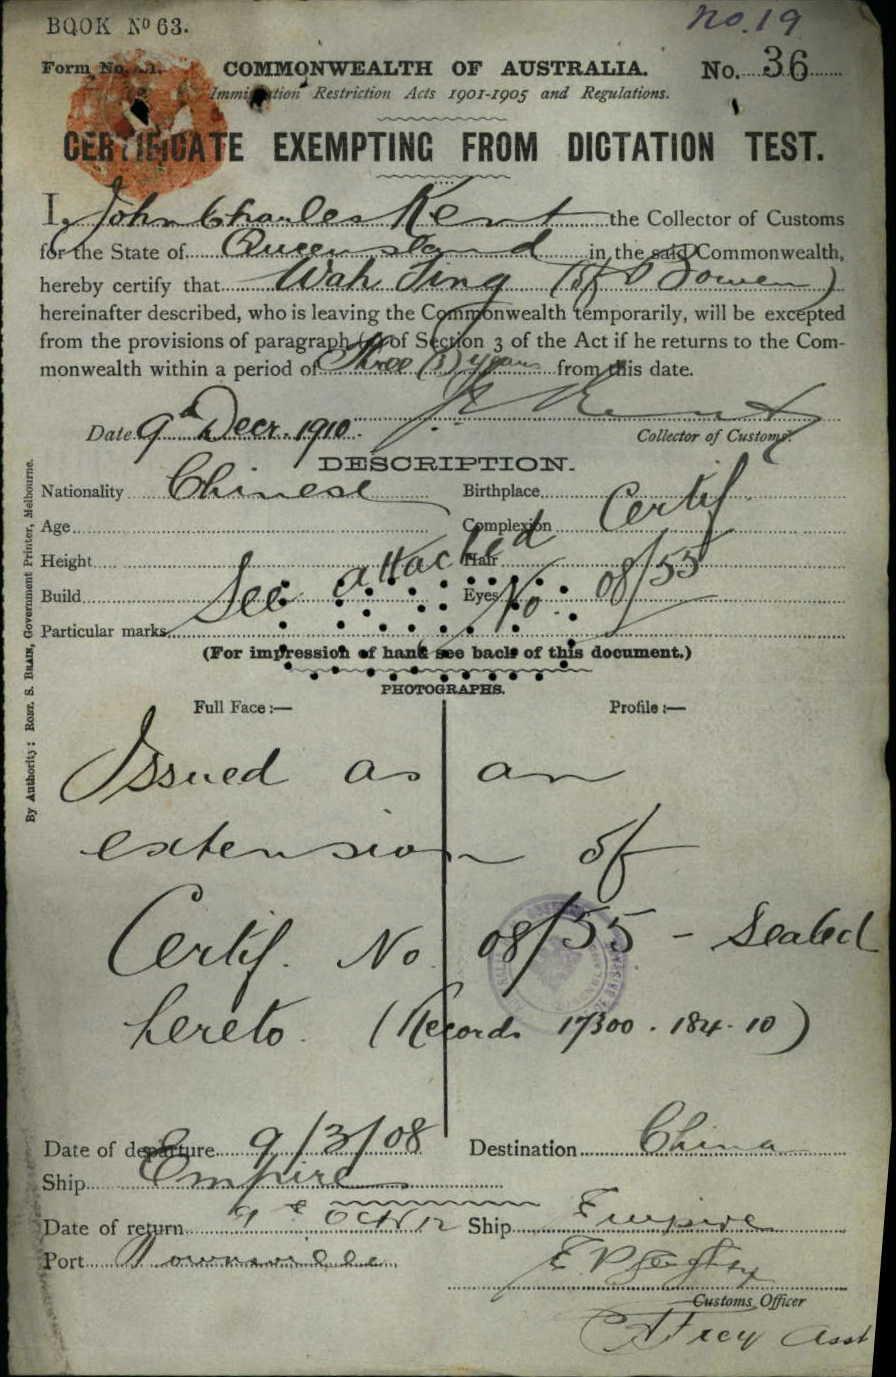 BOOK Nº 63.
No. 19
Form No. 21.
COMMONWEALTH OF AUSTRALIA.
No. 36
Immigration Restriction Acts 1901-1905 and Regulations.
CERTIFICATE EXEMPTING FROM DICTATION TEST.
I, John Charles Kent the Collector of Customs
for the State of Queensland in the said Commonwealth,
hereby certify that Wah Sing (of Bowen)
hereinafter described, who is leaving the Commonwealth temporarily, will be excepted
from the provisions of paragraph (a) of Section 3 of the Act if he returns to the Com-
monwealth within a period of Three (3) years from this date.
Date 9th Decr. 1910.
Collector of Customs.
DESCRIPTION.
Nationality Chinese
Birthplace
Age
Complexion
Height
Hair
Build
Eyes
Particular marks
See attached Certif No. 08/55
(For impression of hand see back of this document.)
PHOTOGRAPHS.
Full Face :—
Profile :—
Issued as an
extension of
Certif. No. 08/55 - Sealed
hereto. (Records 17300. 184. 10)
Date of departure 9/3/08
Destination China
Ship Empire
Date of return 9th Oct 12 Ship Empire
Port Townsville
Customs Officer
Asst
By Authority: ROBT. S. BRAIN, Government Printer, Melbourne.